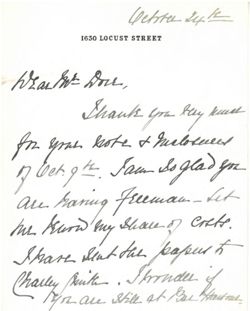 October 24th
1630 LOCUST STREET
Dear Mr Dorr,
Thank you very much
for your note & inclosures
of Oct. 9th. I am so glad you
are having Freeman - let
me know my share of costs.
I have sent the papers to
Charley Smith. I wonder if
you are still at Bar Harbor